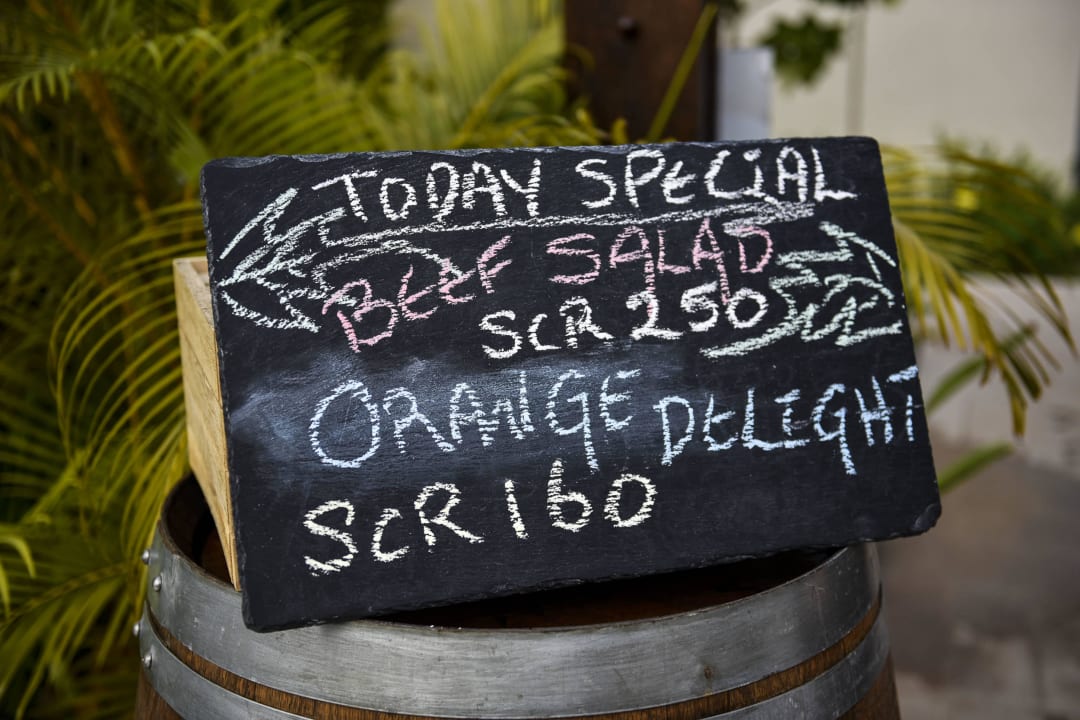 TODAY SPECIAL
BEEF SALAD
SCR 250
ORANGE DELIGHT
SCR 160